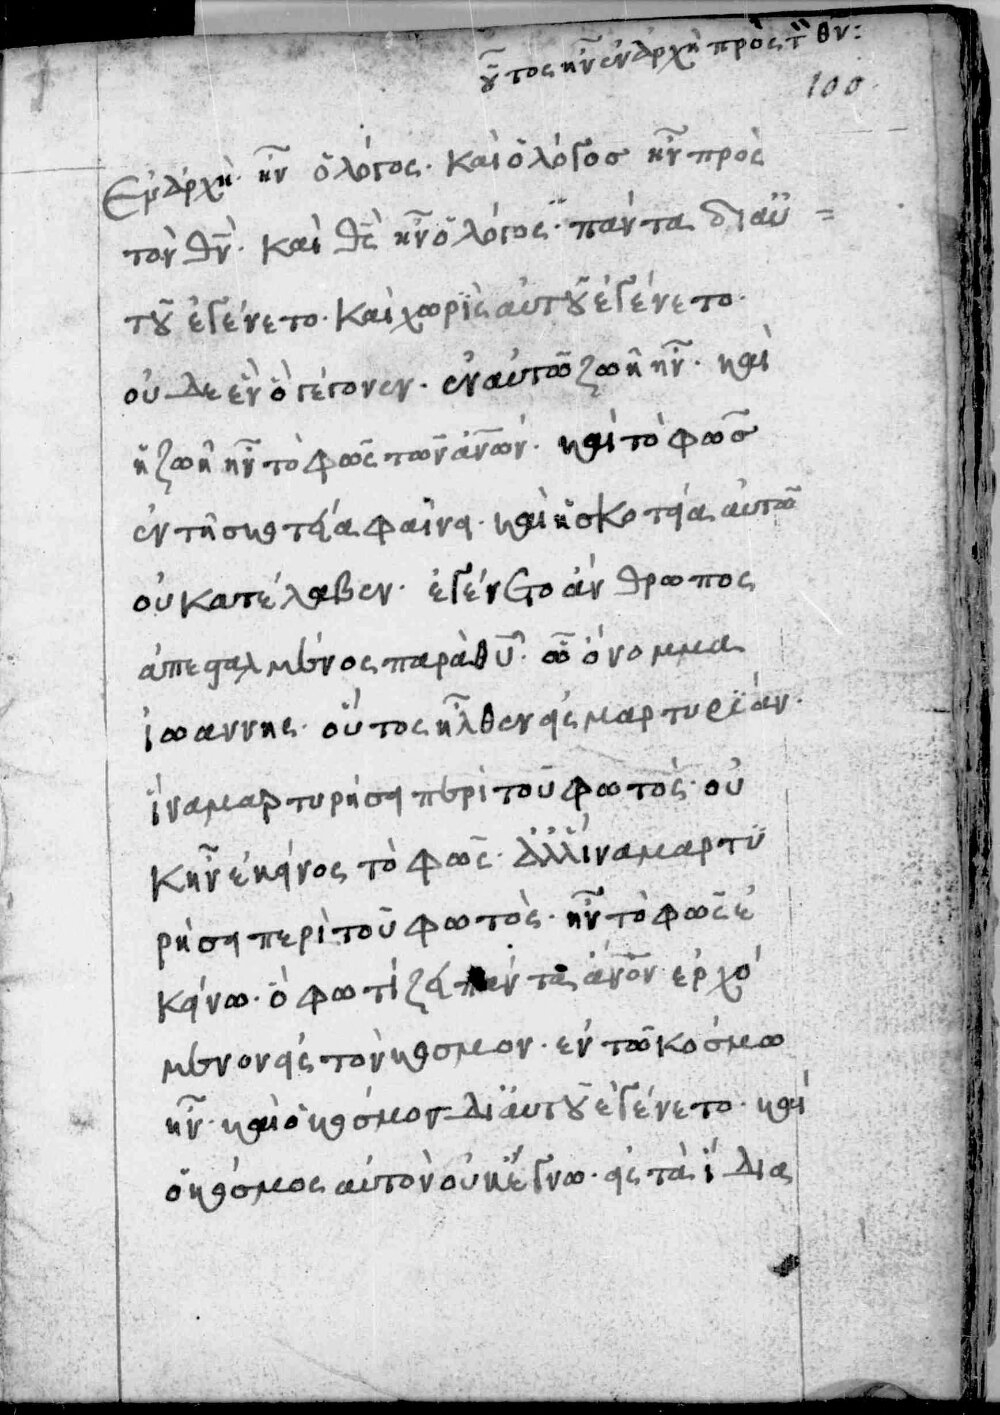 οὗτος ἦν ἐν ἀρχὴ πρὸς τ̈ θν̅:
100
Ἐν ἀρχὴ· ἦν ὁ λόγος· Καὶ ὁ λόγοσ ἦν πρὸς
τὸν θν̅· Καὶ θς̅ ἦν ὁ λόγος·̈ πάντα διαὐ =
τοῦ ἐγένετο· Καὶ χωρὶς αὐτοῦ ἐγένετο·
οὐδε ἓν ὃ γέγονεν· ἐν αὐτῶ ζωὴ ἦν· καὶ
ἡ ζωὴ ἦν τὸ φῶς τῶν ἀν̅ων· καὶ τὸ φῶσ
ἐν τῆ σκοτεία φαίνει· καὶ ἡ σκοτεία αὐτῶ
οὐ κατέλαβεν· ἐγένετο ἄνθρωπος
ἀπεσταλμένος παρὰ θυ̅· ὧ ὄνομμα
ἰωαννης· οὗτος ἦλθεν εἰς μαρτυρϊάν·
ἵνα μαρτυρήσει περὶ τοῦ φωτὸς· οὐ
Κ ἦν ἐκείνος τὸ φῶς· ἀλλ' ἵνα μαρτυ
ρήσει περὶ τοῦ φωτὸς· ἦν τὸ φῶς ἐ
κείνω· ὃ φωτίζει πάντα ἀν̅ον ἐρχό
μενον εἰς τὸν κοσμον· ἐν τῶ κόσμω
ἦν· καὶ ὁ κόσμος δι αὐτοῦ ἐγένετο· καὶ
ὁ κόσμος αὐτὸν οὐκ ἔγνω· εἰς τὰ ἴδια